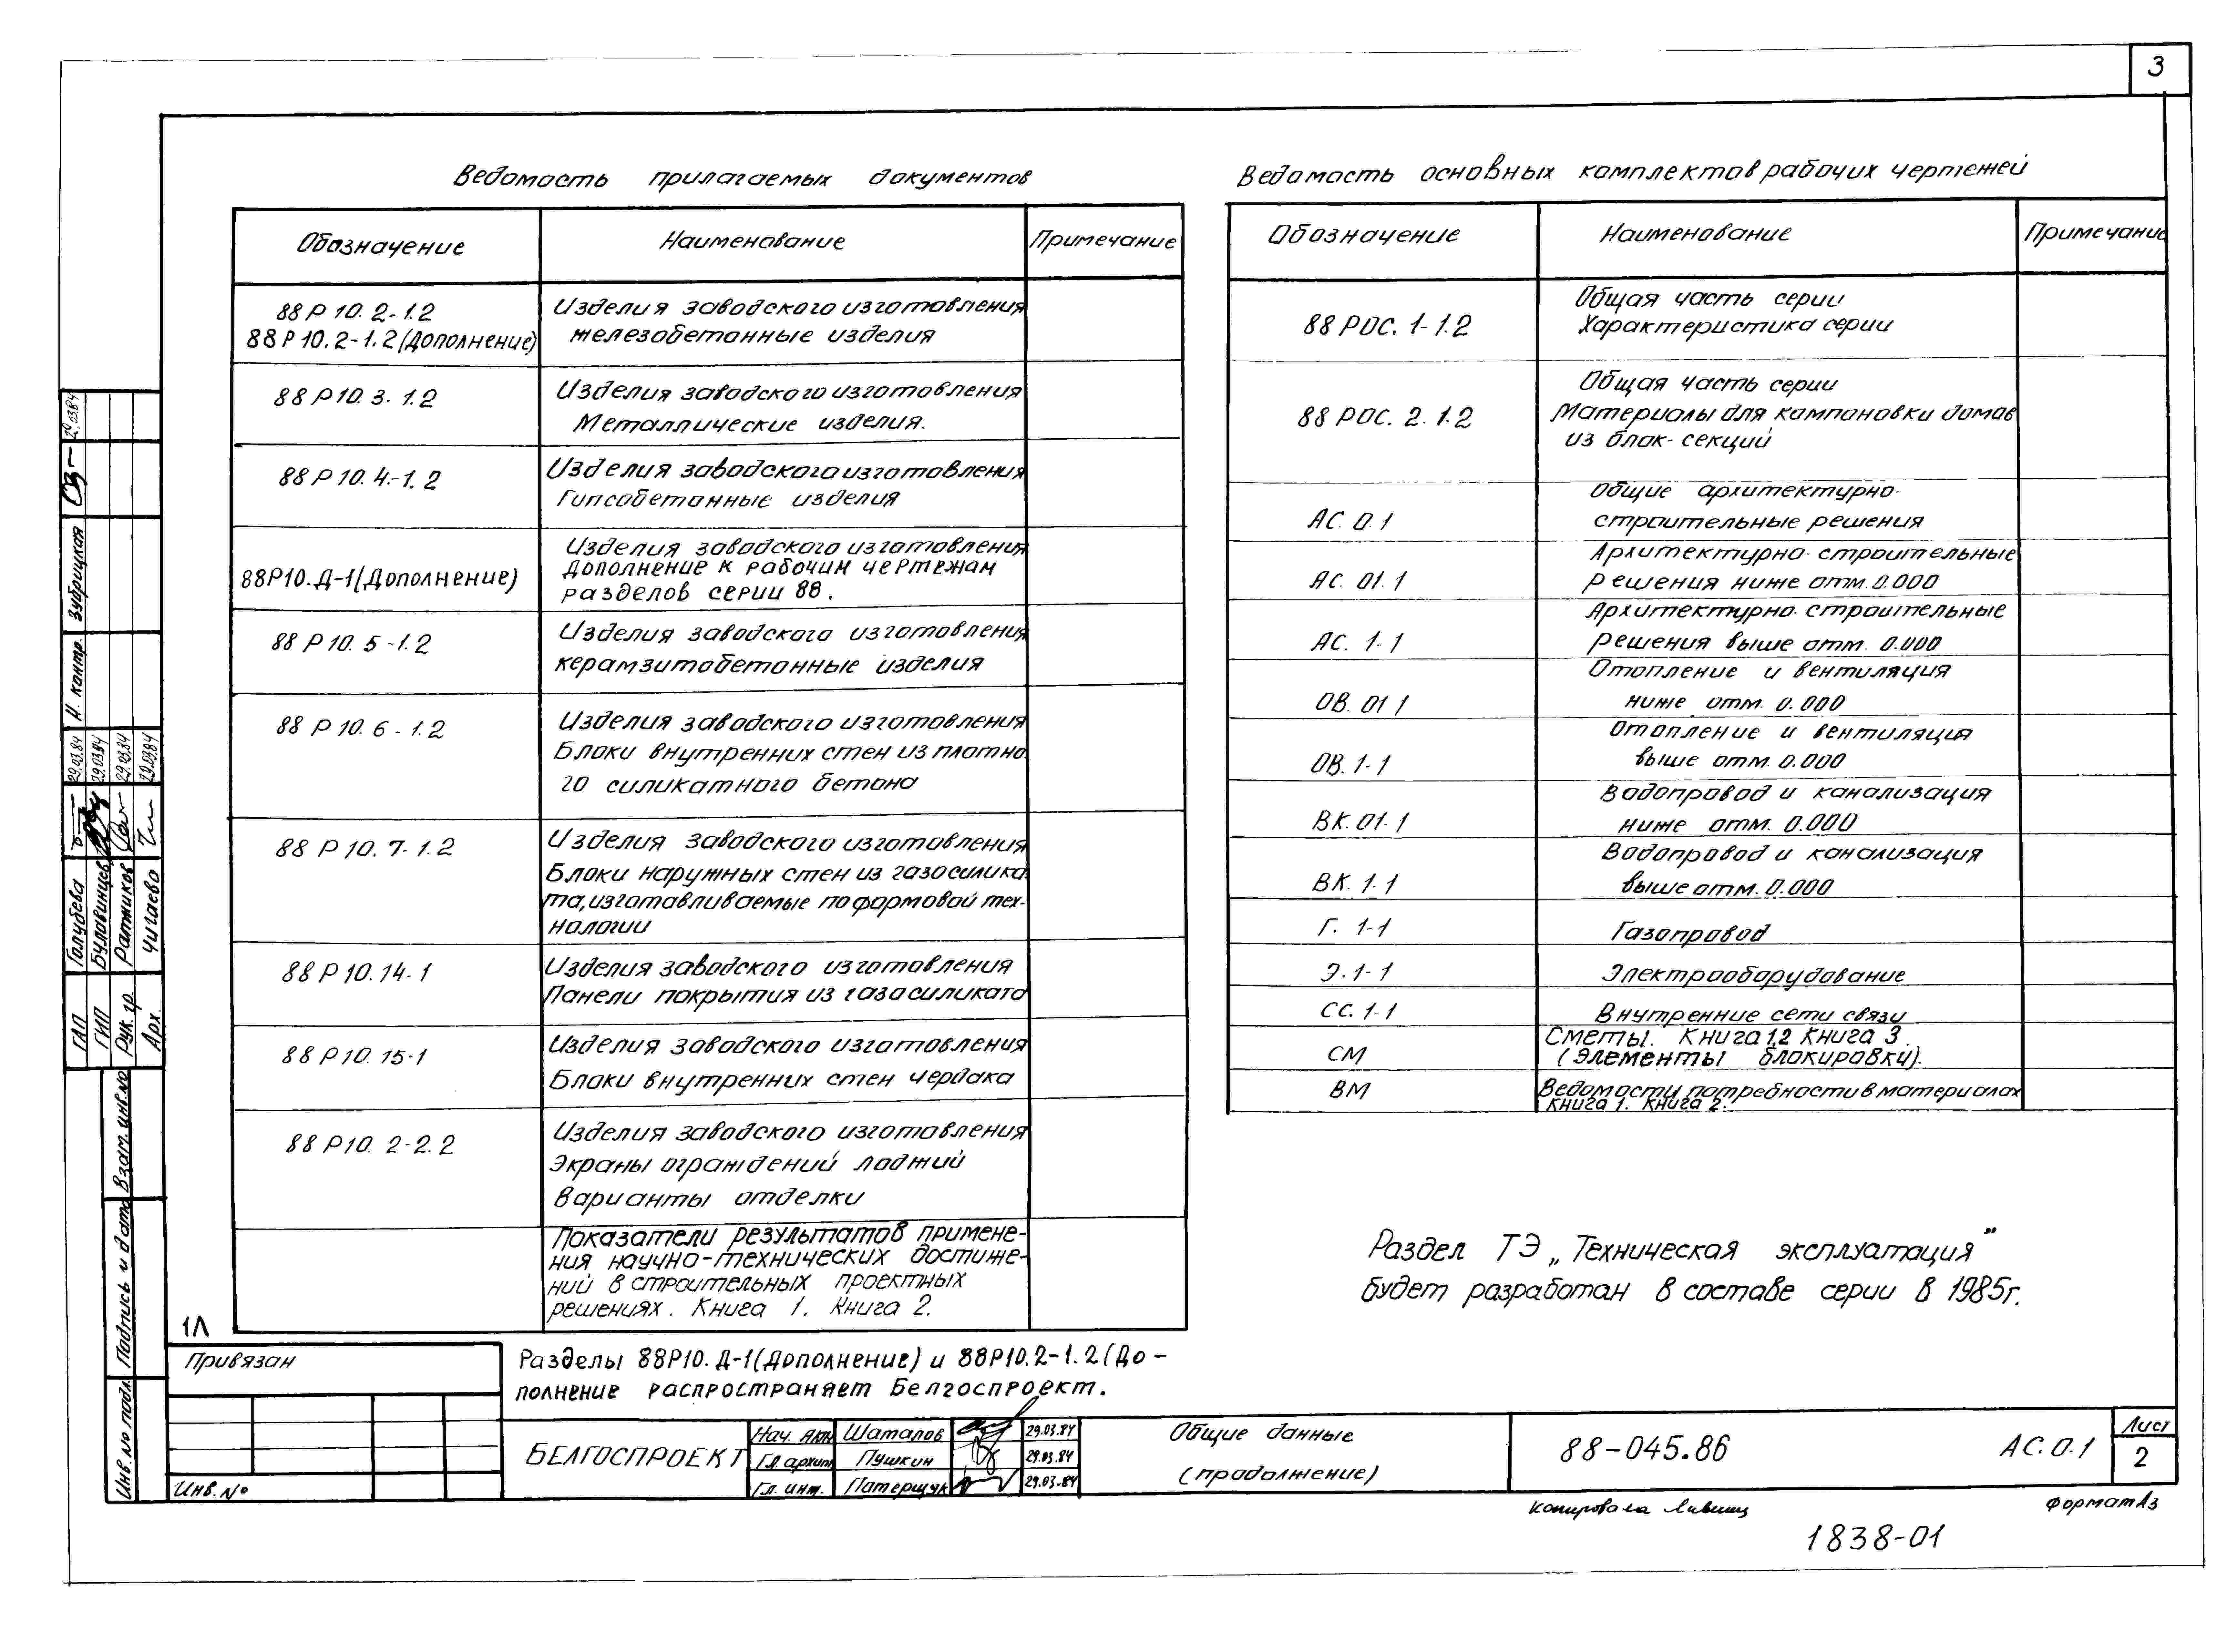 3
Ведомость прилагаемых документов
Обозначение Наименование Примечание
88 Р 10. 2-1.2
88 Р 10. 2-1.2 (Дополнение)
Изделия заводского изготовления
железобетонные изделия
88 Р 10. 3. 1.2
Изделия заводского изготовления
Металлические изделия.
88 Р 10. 4.-1.2
Изделия заводского изготовления
Гипсобетонные изделия
88Р10. Д-1 (Дополнение)
Изделия заводского изготовления
Дополнение к рабочим чертежам
разделов серии 88.
88 Р 10. 5 -1.2
Изделия заводского изготовления
керамзитобетонные изделия
88 Р 10. 6 - 1.2
Изделия заводского изготовления
Блоки внутренних стен из плотно-
го силикатного бетона
88 Р 10. 7. 1.2
Изделия заводского изготовления
Блоки наружных стен из газосилика-
та, изготавливаемые по формовой тех-
нологии
88 Р 10. 14-1
Изделия заводского изготовления
Панели покрытия из газосиликата
88 Р 10. 15-1
Изделия заводского изготовления
Блоки внутренних стен чердака
88 Р 10. 2-2.2
Изделия заводского изготовления
Экраны ограждений лоджий
Варианты отделки
Показатели результатов примене-
ния научно-технических достиже-
ний в строительных проектных
решениях. Книга 1. Книга 2.
Ведомость основных комплектов рабочих чертежей
Обозначение Наименование Примечание
88 РОС. 1-1.2
Общая часть серии
Характеристика серии
88 РОС. 2. 1.2
Общая часть серии
Материалы для компоновки домов
из блок-секций
АС. 0. 1
Общие архитектурно-
строительные решения
АС. 01. 1
Архитектурно-строительные
решения ниже отм. 0.000
АС. 1-1
Архитектурно-строительные
решения выше отм. 0.000
ОВ. 01 1
Отопление и вентиляция
ниже отм. 0.000
ОВ. 1-1
Отопление и вентиляция
выше отм. 0.000
ВК. 01. 1
Водопровод и канализация
ниже отм. 0.000
ВК. 1-1
Водопровод и канализация
выше отм. 0.000
Г. 1-1 Газопровод
Э. 1-1 Электрооборудование
СС. 1-1 Внутренние сети связи
СМ
Сметы. Книга 1,2 Книга 3.
(Элементы блокировки).
ВМ
Ведомости потребности в материалах
Книга 1. Книга 2.
Раздел ТЭ „Техническая эксплуатация"
будет разработан в составе серии в 1985г.
1Л
Привязан
Инв. №
Разделы 88Р10. Д-1 (Дополнение) и 88Р10. 2-1.2 (До-
полнение распространяет Белгоспроект.
БЕЛГОСПРОЕКТ
Нач. АКМ Шаталов 29.03.84
Гл. архит Пушкин 29.03.84
Гл. инж. Патерщук 29.03.84
Общие данные
(продолжение)
88-045.86 АС. 0. 1
Лист
2
Копировала Лившиц
Формат А3
1838-01
Н. контр. Зубрицкая 29.03.84
ГАП Голубева 29.03.84
ГИП Буловинцев 29.03.84
Рук. гр. Ратников 29.03.84
Арх. Чигаева 29.03.84
Взам. инв. №
Подпись и дата
Инв. № подл.